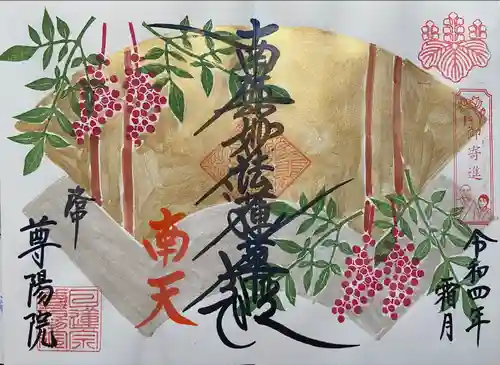 令和四年
霜月
御寄進
南無妙法蓮華経
南天
常
尊陽院